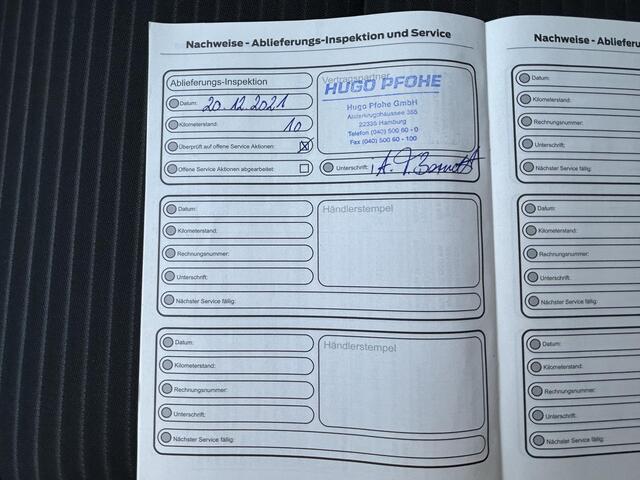 Nachweise - Ablieferungs-Inspektion und Service
Ablieferungs-Inspektion
Datum: 20.12.2021
Kilometerstand: 10
Überprüft auf offene Service Aktionen:
Offene Service Aktionen abgearbeitet:
Vertragspartner
HUGO PFOHE
Hugo Pfohe GmbH
Alsterkrugchaussee 355
22335 Hamburg
Telefon (040) 500 60 - 0
Fax (040) 500 60 - 100
Unterschrift:
Datum:
Kilometerstand:
Rechnungsnummer:
Unterschrift:
Nächster Service fällig:
Händlerstempel
Datum:
Kilometerstand:
Rechnungsnummer:
Unterschrift:
Nächster Service fällig:
Händlerstempel
Nachweise - Ablieferu
Datum:
Kilometerstand:
Rechnungsnummer:
Unterschrift:
Nächster Service fällig:
Datum:
Kilometerstand:
Rechnungsnummer:
Unterschrift:
Nächster Service fällig:
Datum:
Kilometerstand:
Rechnungsnummer:
Unterschrift:
Nächster Service fällig: